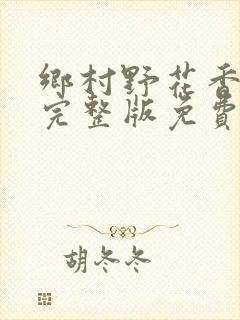 鄉村野花香
完整版免費
胡冬冬